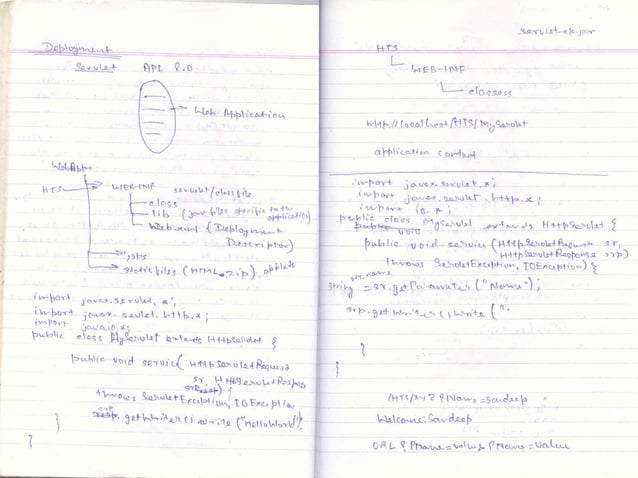 Deployment
Servlet API 2.0
Web Application
WebApps
HTS
WEB-INF servlet/class file
class
lib (jar files specific to the application)
Web.xml (Deployment
Descriptor)
jsps
static files (HTML, zip) applets
import javax.servlet.*;
import javax.servlet.http.*;
import java.io.*;
public class MyServlet extends HttpServlet {
public void service( HttpServletRequest
sr, HttpServletResponse
srp) {
throws ServletException, IOException
srp.getWriter().write ("HelloWorld");
}
}
servlet-api.jar
HTS
WEB-INF
classes
http://localhost/HTS/MyServlet
application context
import javax.servlet.*;
import javax.servlet.http.*;
import io.*;
public class MyServlet extends HttpServlet {
public void service (HttpServletRequest sr,
HttpServletResponse srp)
throws ServletException, IOException) {
string name = sr.getParameter ("Name");
srp.getWriter().write ("
}
}
/HTS/XYZ?Name=sandeep
Welcome:Sandeep
URL? PName=value, PName=value